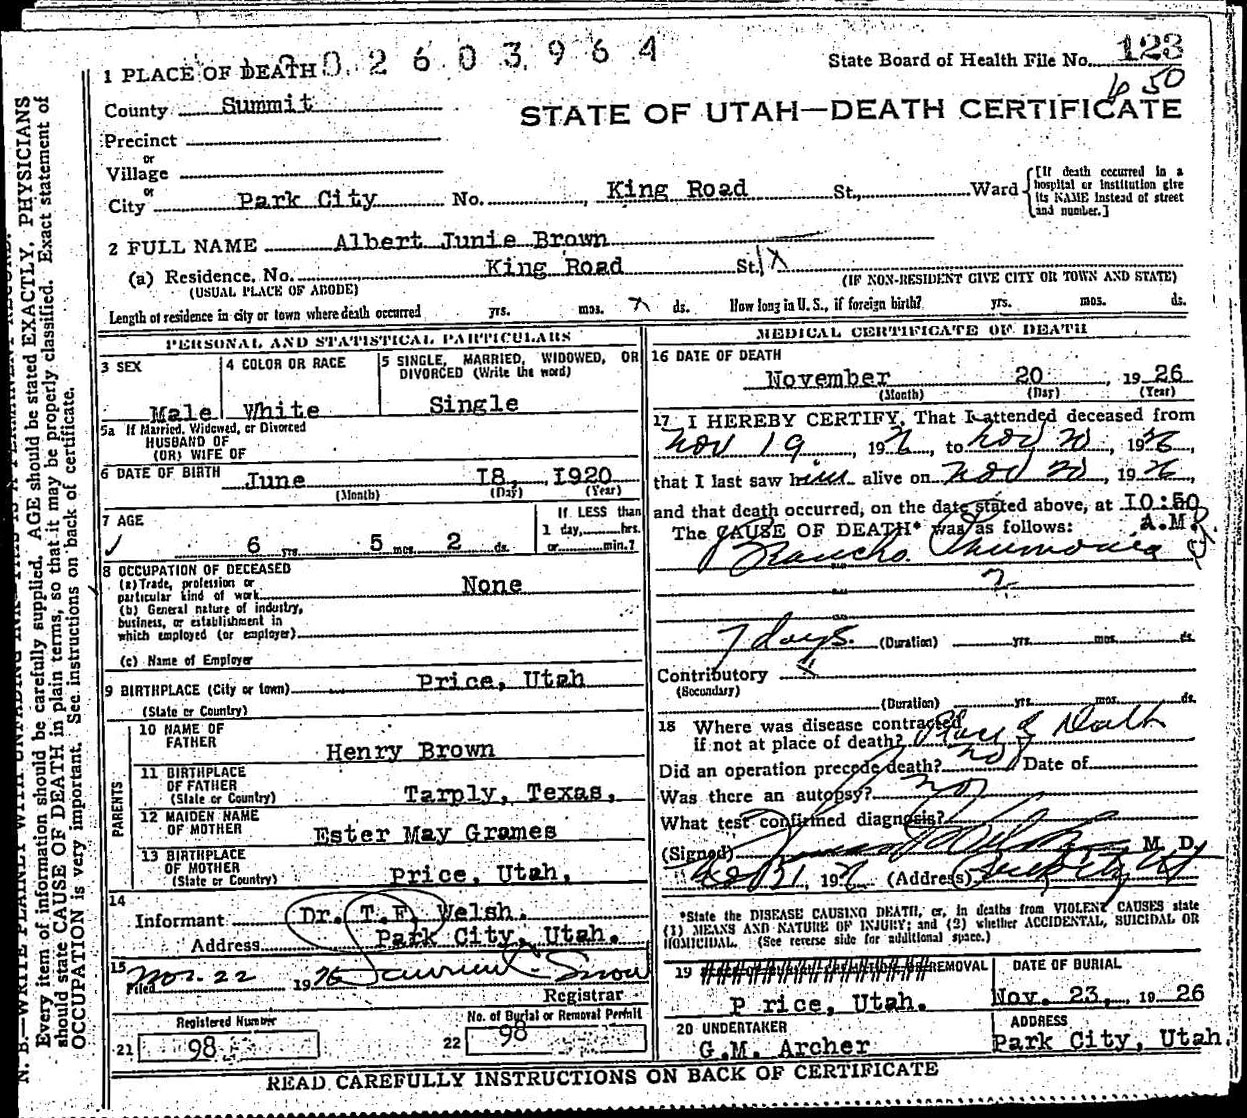 02603964
State Board of Health File No. 123
650
1 PLACE OF DEATH
County Summit
STATE OF UTAH—DEATH CERTIFICATE
Precinct
or
Village
or
City Park City No. , King Road St., Ward [If death occurred in a hospital or institution give its NAME instead of street and number.]
2 FULL NAME Albert Junie Brown
(a) Residence, No. King Road St.
(USUAL PLACE OF ABODE) (IF NON-RESIDENT GIVE CITY OR TOWN AND STATE)
Length of residence in city or town where death occurred yrs. mos. ds. How long in U. S., if foreign birth? yrs. mos. ds.
PERSONAL AND STATISTICAL PARTICULARS
3 SEX Male
4 COLOR OR RACE White
5 SINGLE, MARRIED, WIDOWED, OR DIVORCED (Write the word) Single
5a If Married, Widowed, or Divorced
HUSBAND OF
(OR) WIFE OF
6 DATE OF BIRTH June 18, 1920
(Month) (Day) (Year)
7 AGE 6 yrs. 5 mos. 2 ds.
If LESS than
1 day, hrs.
or min.?
8 OCCUPATION OF DECEASED
(a) Trade, profession or
particular kind of work None
(b) General nature of industry,
business, or establishment in
which employed (or employer)
(c) Name of Employer
9 BIRTHPLACE (City or town) Price, Utah
(State or Country)
PARENTS
10 NAME OF FATHER Henry Brown
11 BIRTHPLACE OF FATHER (State or Country) Tarply, Texas,
12 MAIDEN NAME OF MOTHER Ester May Grames
13 BIRTHPLACE OF MOTHER (State or Country) Price, Utah,
14
Informant Dr. T.F. Welsh.
Address Park City, Utah.
15
Filed Nov. 22 1926 Snow
Registrar
Registered Number
21 98
No. of Burial or Removal Permit
22 98
MEDICAL CERTIFICATE OF DEATH
16 DATE OF DEATH
November 20, 1926
(Month) (Day) (Year)
17 I HEREBY CERTIFY, That I attended deceased from
Nov 19, 1926, to Nov 20, 1926,
that I last saw him alive on Nov 20, 1926,
and that death occurred, on the date stated above, at 10:50 A.M.
The CAUSE OF DEATH* was as follows:
Broncho Pneumonia
7 days. (Duration) yrs. mos. ds.
Contributory
(Secondary)
(Duration) yrs. mos. ds.
18 Where was disease contracted
if not at place of death? Place of Death
Did an operation precede death? no Date of
Was there an autopsy? no
What test confirmed diagnosis?
(Signed) M. D.
21, 192 (Address) Park City Ut
*State the DISEASE CAUSING DEATH, or, in deaths from VIOLENT CAUSES state
(1) MEANS AND NATURE OF INJURY; and (2) whether ACCIDENTAL, SUICIDAL OR
HOMICIDAL. (See reverse side for additional space.)
19 REMOVAL
Price, Utah.
DATE OF BURIAL
Nov. 23, 1926
20 UNDERTAKER
G.M. Archer
ADDRESS
Park City, Utah.
READ CAREFULLY INSTRUCTIONS ON BACK OF CERTIFICATE
N. B.—WRITE PLAINLY WITH UNFADING INK—THIS IS A PERMANENT RECORD.
Every item of information should be carefully supplied. AGE should be stated EXACTLY. PHYSICIANS
should state CAUSE OF DEATH in plain terms, so that it may be properly classified. Exact statement of
OCCUPATION is very important. See instructions on back of certificate.